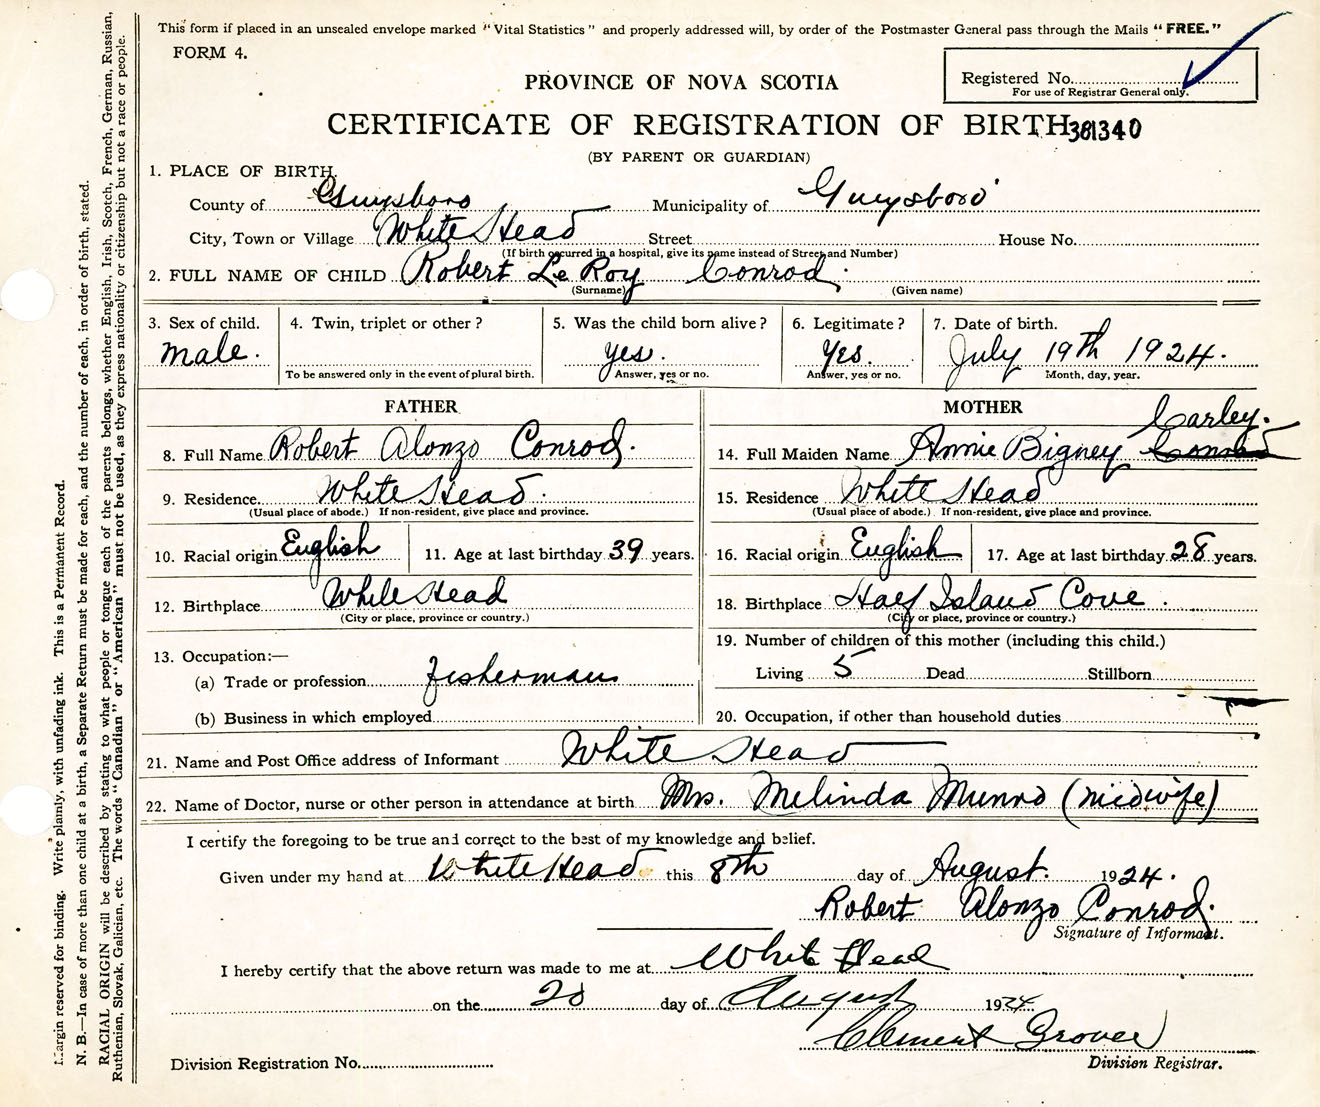 This form if placed in an unsealed envelope marked "Vital Statistics" and properly addressed will, by order of the Postmaster General pass through the Mails "FREE."
FORM 4.
Registered No.
For use of Registrar General only.
PROVINCE OF NOVA SCOTIA
CERTIFICATE OF REGISTRATION OF BIRTH 381340
(BY PARENT OR GUARDIAN)
1. PLACE OF BIRTH.
County of Guysboro Municipality of Guysboro
City, Town or Village White Head Street House No.
(If birth occurred in a hospital, give its name instead of Street and Number)
2. FULL NAME OF CHILD Robert Le Roy Conrod.
(Surname) (Given name)
3. Sex of child. 4. Twin, triplet or other? 5. Was the child born alive? 6. Legitimate? 7. Date of birth.
male. yes. Yes. July 19th 1924.
To be answered only in the event of plural birth. Answer, yes or no. Answer, yes or no. Month, day, year.
FATHER
8. Full Name Robert Alonzo Conrod.
9. Residence. White Head.
(Usual place of abode.) If non-resident, give place and province.
10. Racial origin English 11. Age at last birthday 39 years.
12. Birthplace White Head
(City or place, province or country.)
13. Occupation:—
(a) Trade or profession fisherman
(b) Business in which employed
MOTHER
Carley.
14. Full Maiden Name Annie Bigney Conrod
15. Residence White Head
(Usual place of abode.) If non-resident, give place and province.
16. Racial origin English 17. Age at last birthday 28 years.
18. Birthplace Half Island Cove.
(City or place, province or country.)
19. Number of children of this mother (including this child.)
Living 5 Dead Stillborn
20. Occupation, if other than household duties
21. Name and Post Office address of Informant White Head
22. Name of Doctor, nurse or other person in attendance at birth Mrs. Melinda Munro (midwife)
I certify the foregoing to be true and correct to the best of my knowledge and belief.
Given under my hand at White Head this 8th day of August. 1924.
Robert Alonzo Conrod.
Signature of Informant.
I hereby certify that the above return was made to me at White Head
on the 20 day of August 1924
Clement Grover
Division Registration No. Division Registrar.
Margin reserved for binding. Write plainly, with unfading ink. This is a Permanent Record.
N. B.—In case of more than one child at a birth, a Separate Return must be made for each, and the number of each, in order of birth, stated.
RACIAL ORIGIN will be described by stating to what people or tongue each of the parents belongs, whether English, Irish, Scotch, French, German, Russian,
Ruthenian, Slovak, Galician, etc. The words "Canadian" or "American" must not be used, as they express nationality or citizenship but not a race or people.